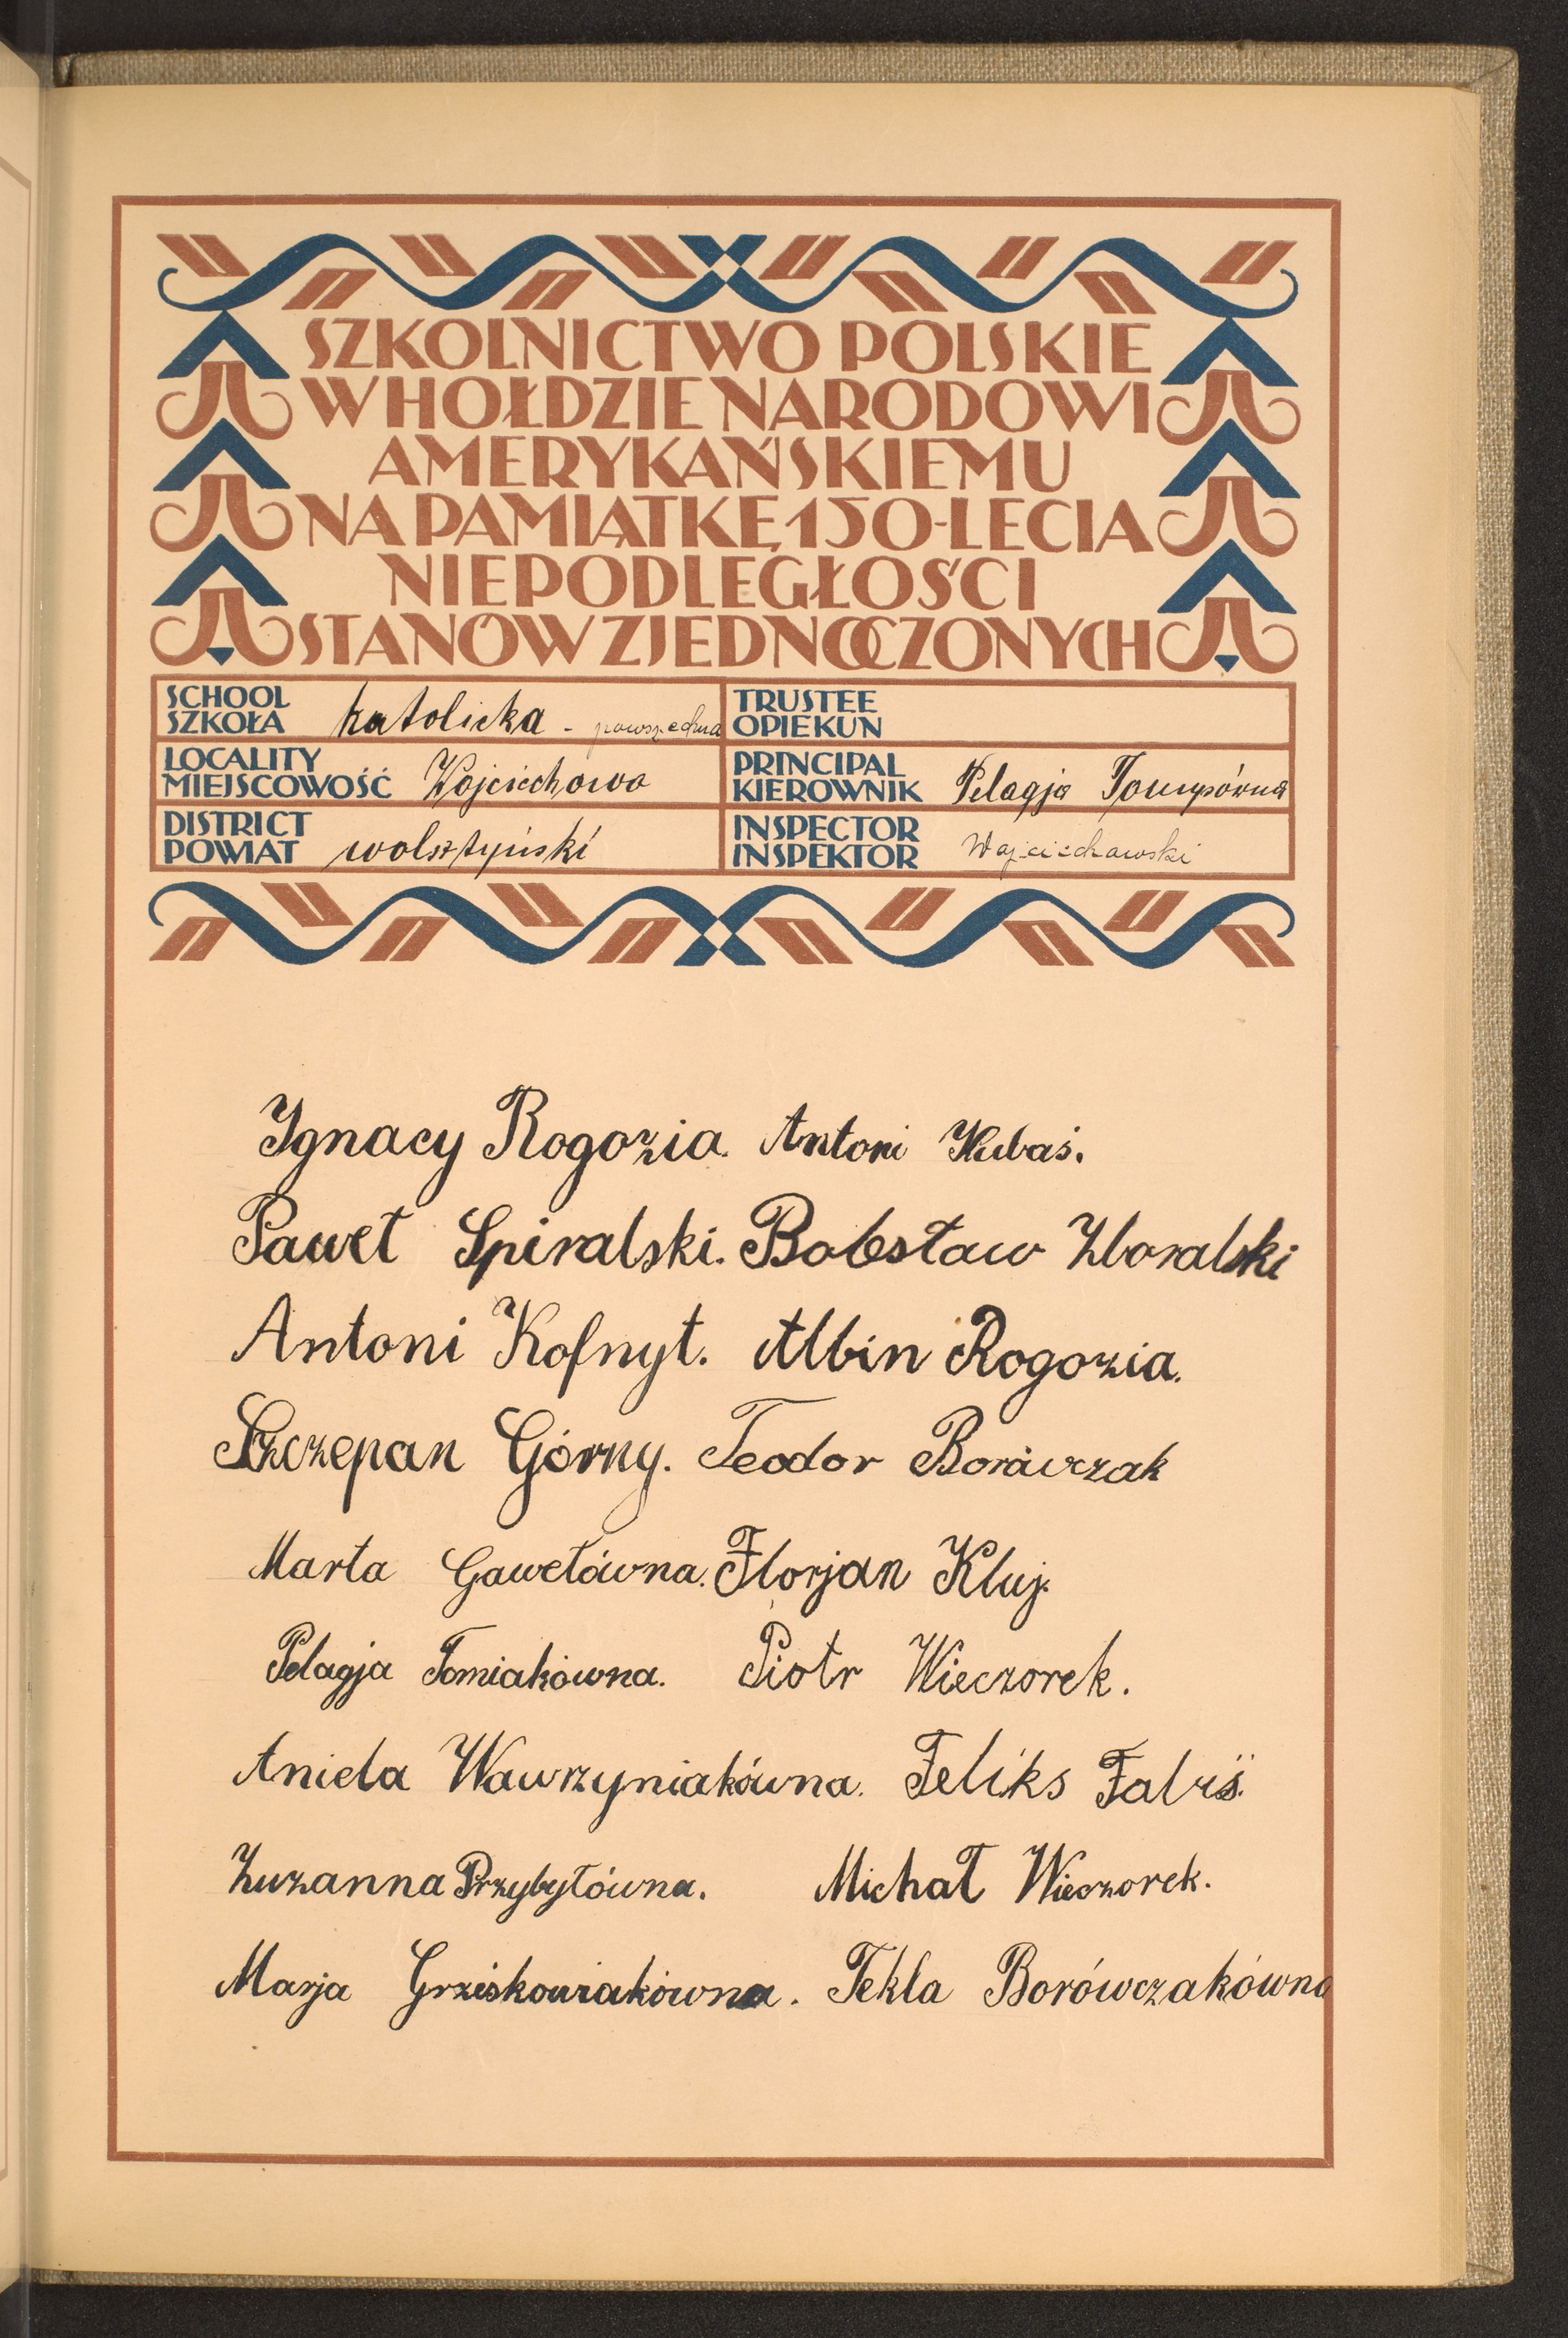 SZKOLNICTWO POLSKIE
W HOŁDZIE NARODOWI
AMERYKAŃSKIEMU
NA PAMIĄTKĘ 150-LECIA
NIEPODLEGŁOŚCI
STANÓW ZJEDNOCZONYCH
SCHOOL
SZKOŁA katolicka - powszechna
TRUSTEE
OPIEKUN
LOCALITY
MIEJSCOWOŚĆ Wojciechowo
PRINCIPAL
KIEROWNIK Pelagja
DISTRICT
POWIAT wolsztyński
INSPECTOR
INSPEKTOR Wojciechowski
Ignacy Rogozia. Antoni Kubaś.
Paweł Spiralski. Bolesław Zboralski
Antoni Kofnyt. Albin Rogozia.
Szczepan Górny. Teodor Borówczak
Marta Gawełówna. Florjan Kluj.
Pelagja Tomiakówna. Piotr Wieczorek.
Aniela Wawrzyniakówna. Feliks
Zuzanna Przybyłówna. Michał Wieczorek.
Marja Grziskowiakówna. Tekla Borówczakówna